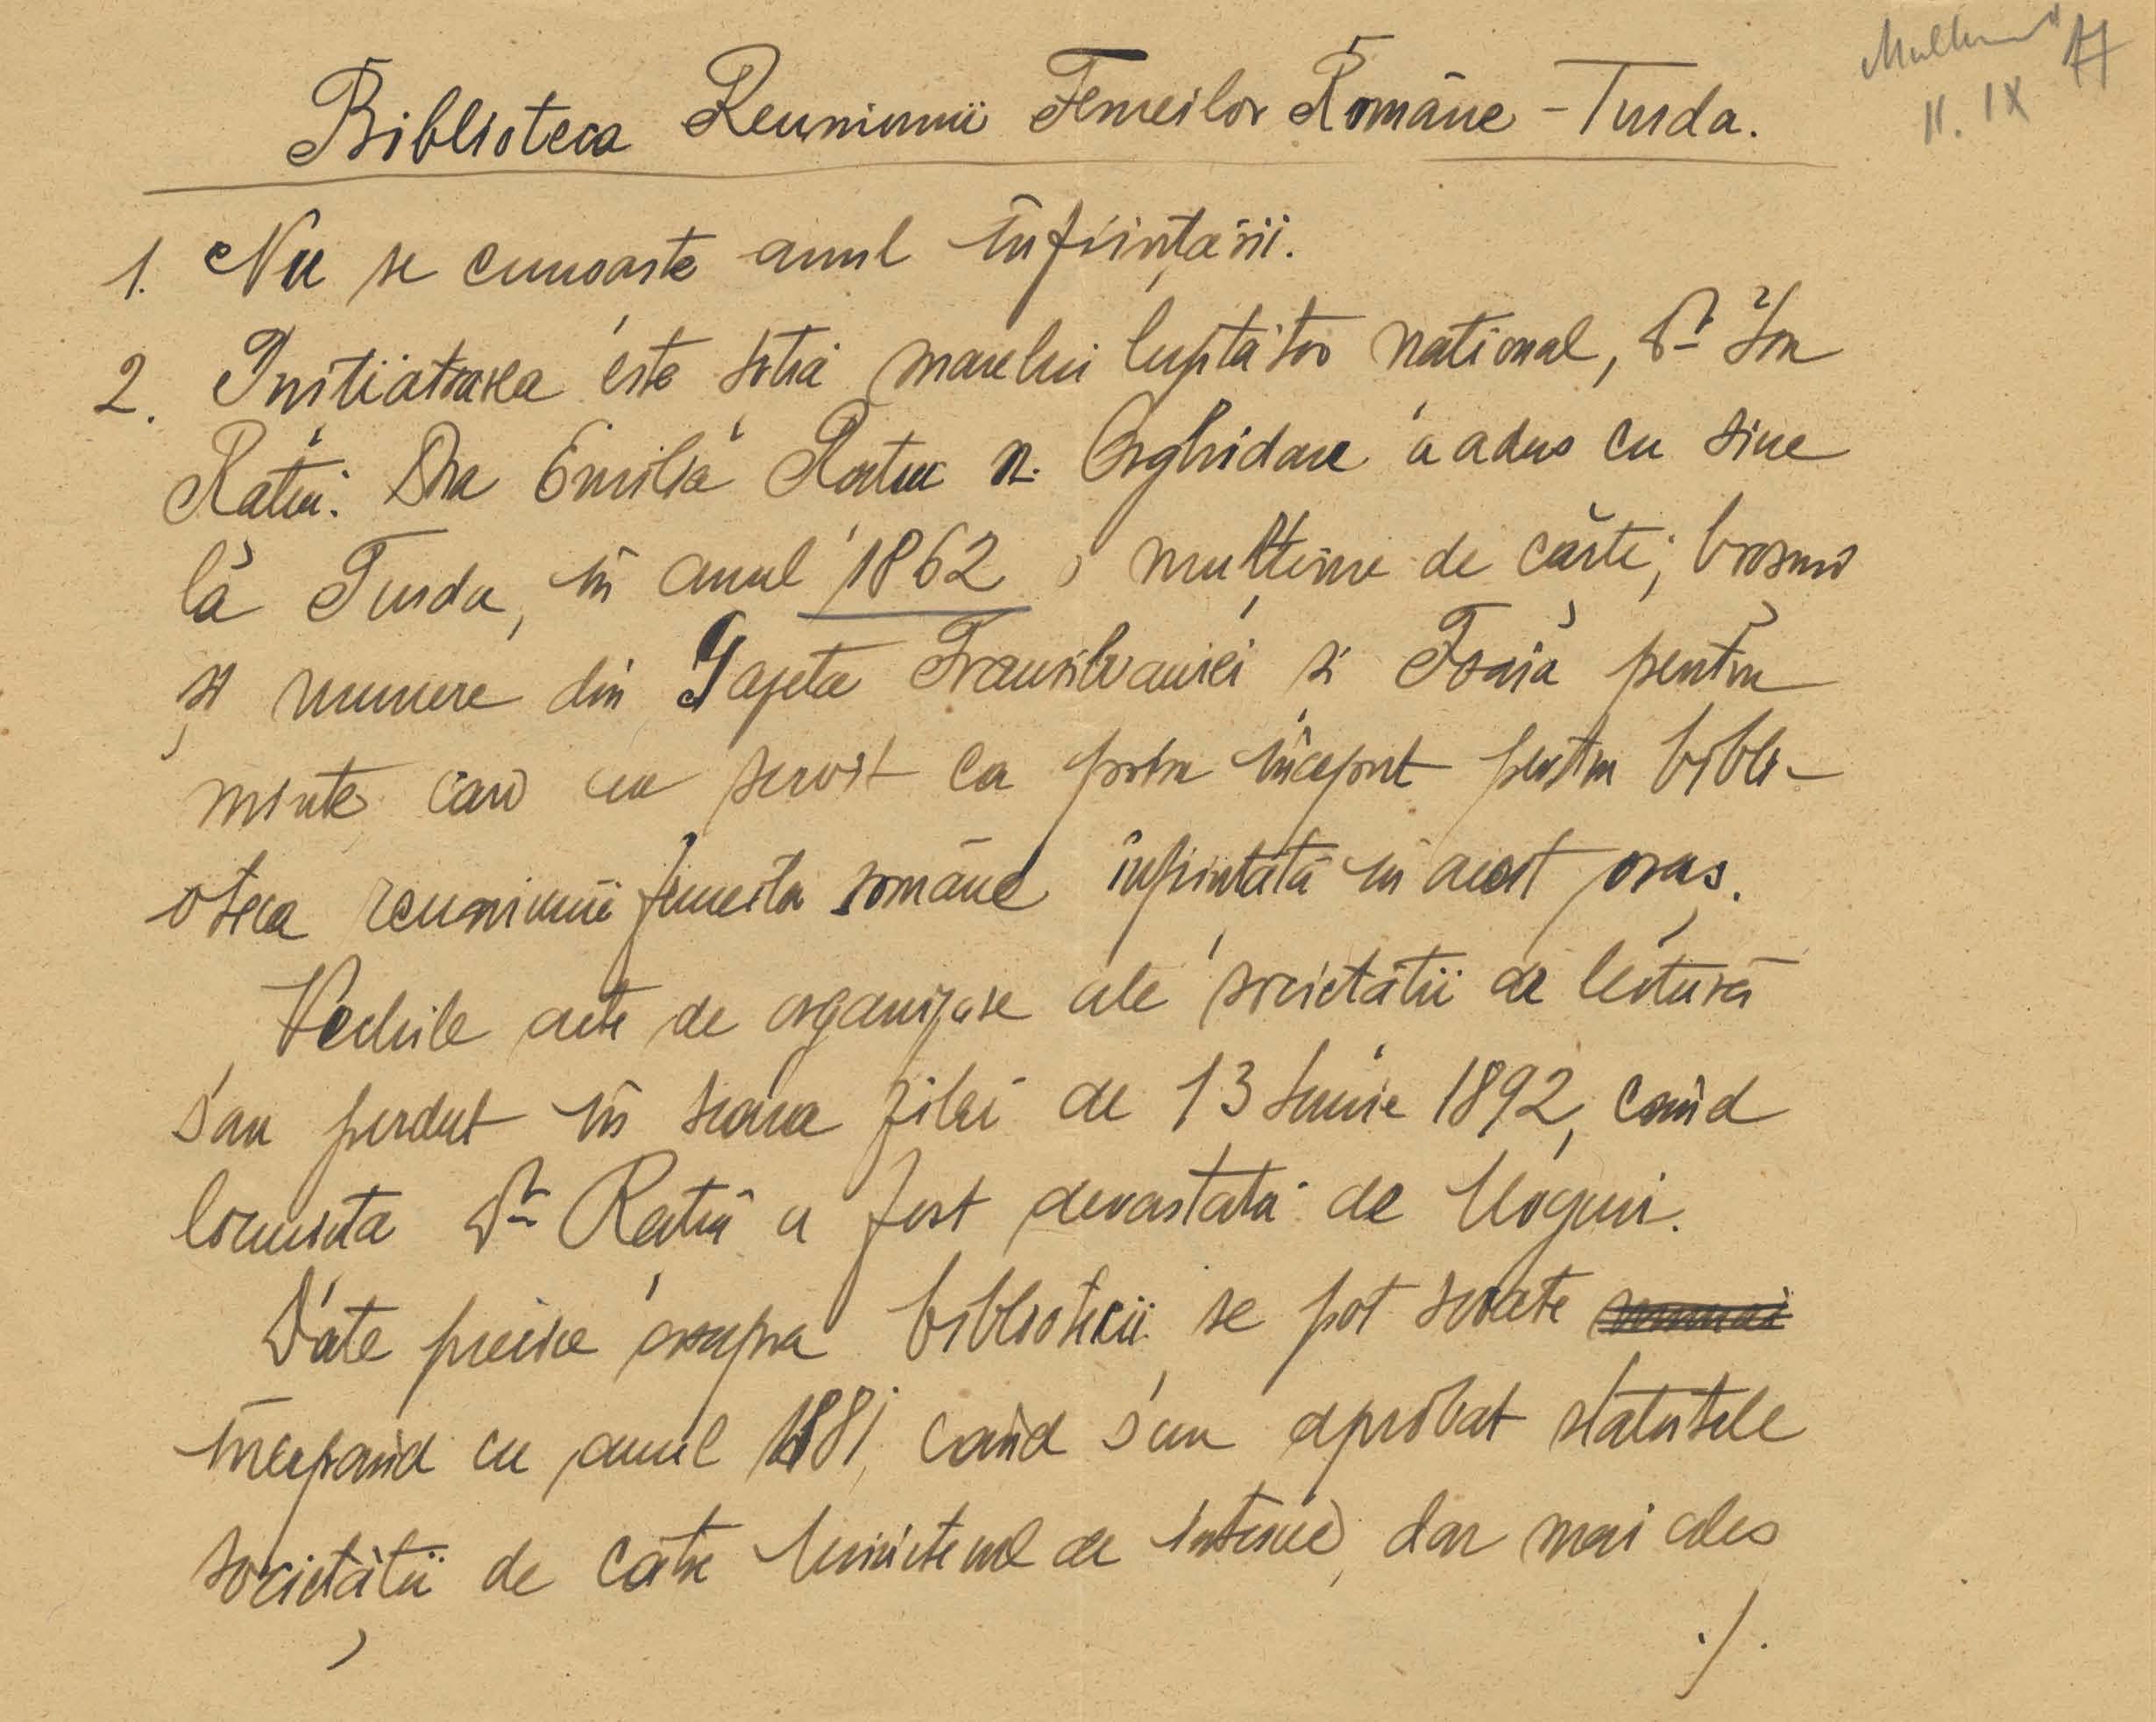 II. IX
Biblioteca Reuniunii Femeilor Române - Turda.
1. Nu se cunoaște anul înființării.
2. Inițiatoarea este soția marelui luptător național, Dr. Ion
Rațiu. Dna Emilia Rațiu n. Orghidan a adus cu sine
la Turda, în anul 1862 o mulțime de cărți, broșuri
și numere din Gazeta Transilvaniei și Foaia pentru
minte cari au servit ca prim început pentru bibli-
oteca reuniunii femeilor române înființată în acest oraș.
Vechile acte de organizare ale societății de lectură
s'au pierdut în seara zilei de 13 Iunie 1892, când
locuința Dr. Rațiu a fost devastată de Unguri.
Date precise asupra bibliotecii se pot scoate
începând cu anul 1881, când s'au aprobat statutele
societății de către Ministerul de interne, dar mai ales
./.